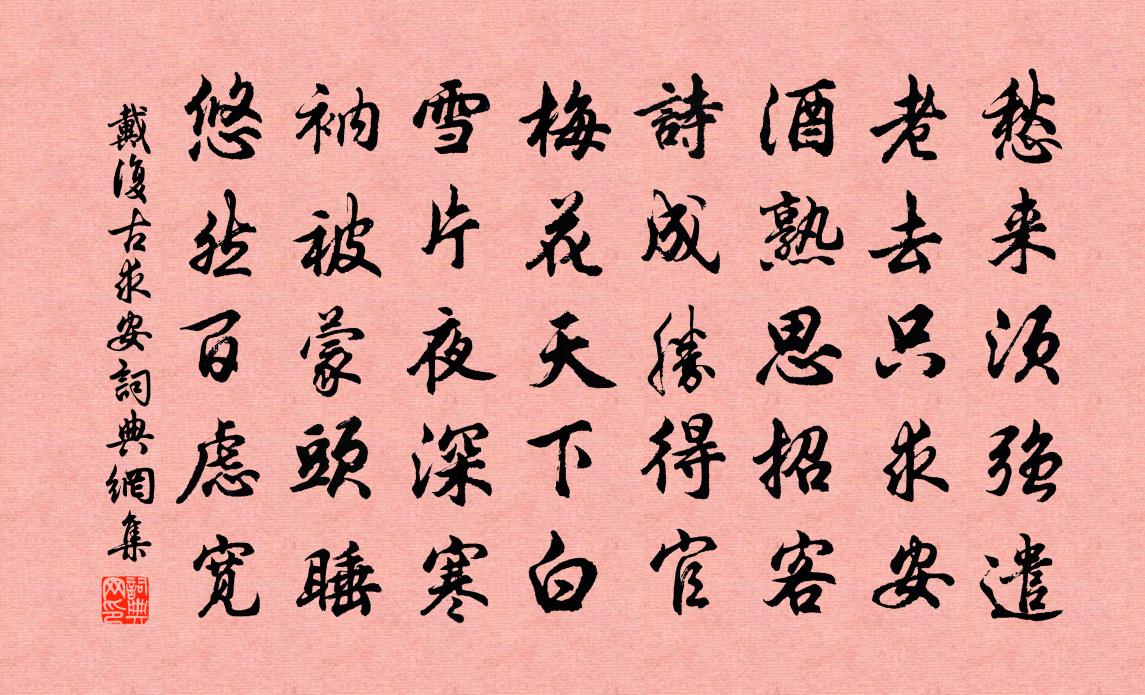 愁来須強遣
老去只求安
酒熟思招客
詩成勝得官
梅花天下白
雪片夜深寒
衲被蒙頭睡
悠然百慮寬
戴復古求安詞典網集
詞典網印